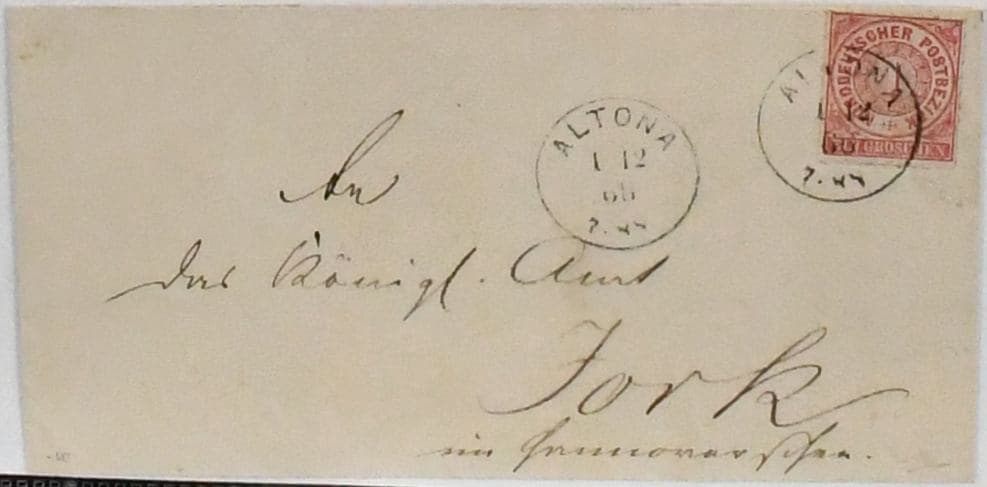 NORDDEUTSCHER POSTBEZI
GROSCHEN
ALTONA
1 12
ALTONA
1 12
68
An
das Königl. Amt
Jork
im Hannoverschen.